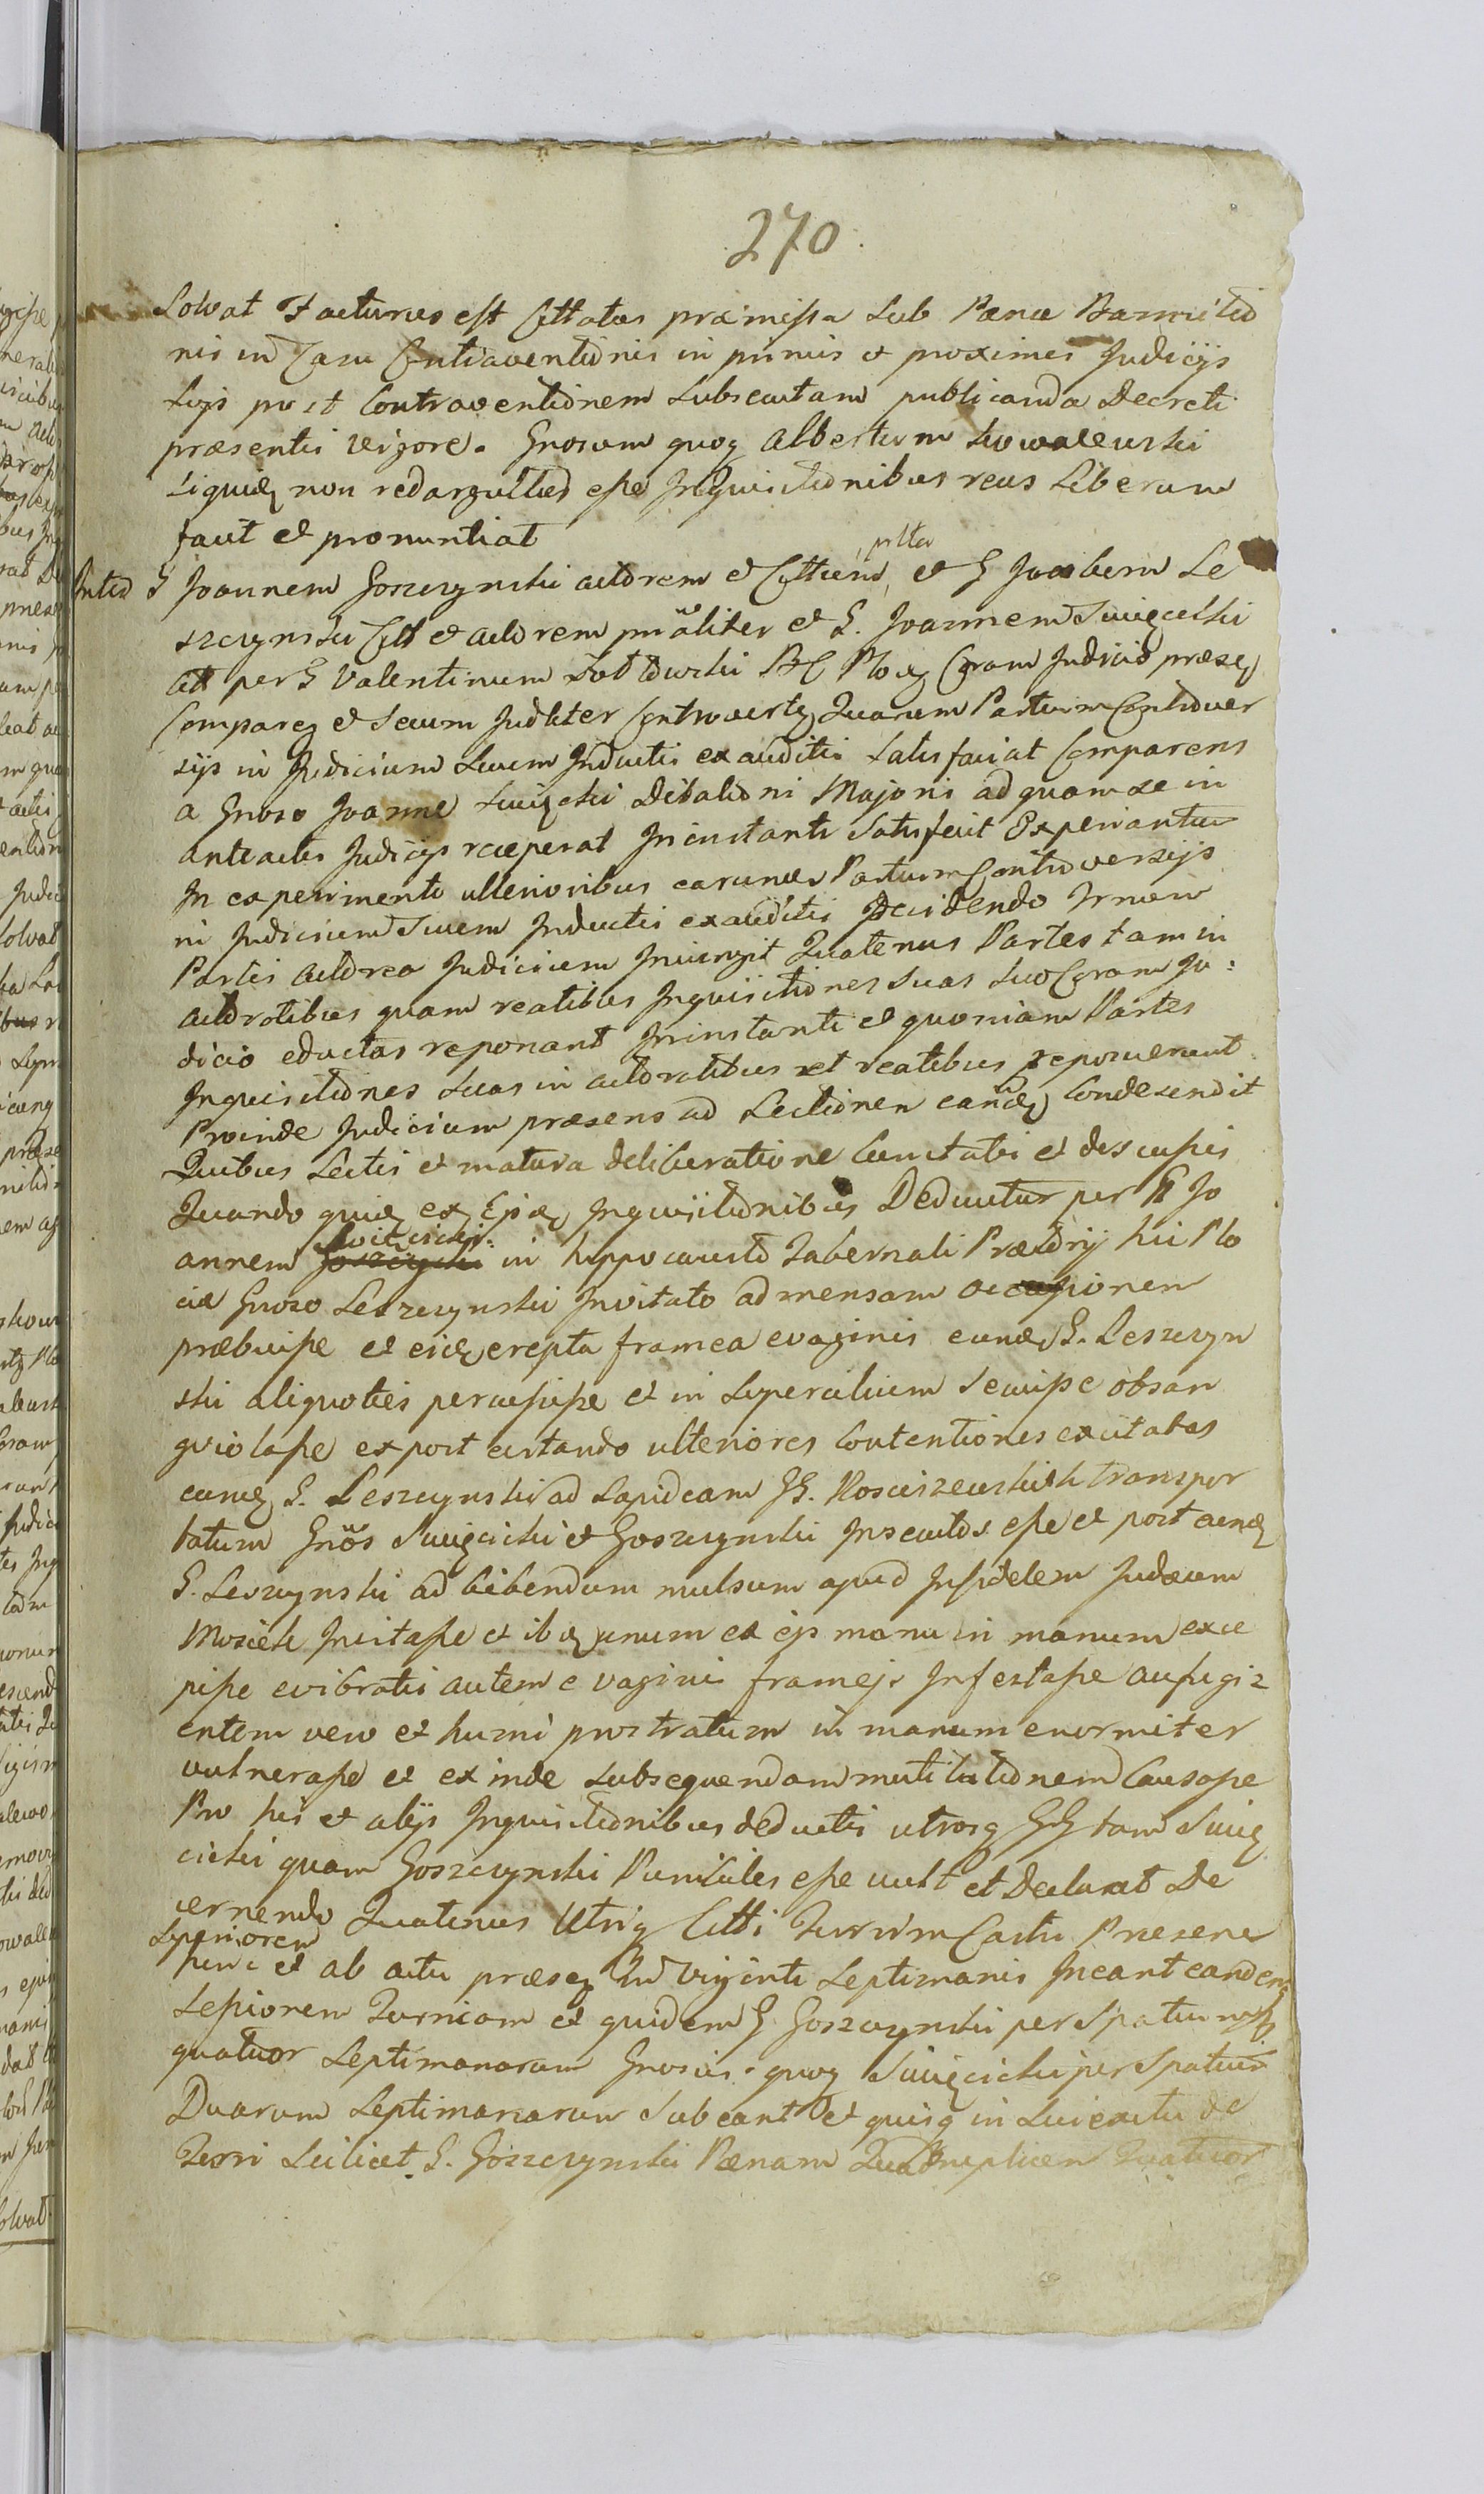 270
Solvat Facturus est Cittatus præmissa Sub Pæna Bannitio
nis in Casu Contraventionis in primis et proximis Judicijs
Suis post Contraventionem Subsecutam publicanda Decreti
præsentis vigore. Gnosum quoq Albertum Kowalewski
siquidq non redargutus esse Inquisitionibus reus Liberum
facit et pronuntiat
Inter G Joannem Goszczynski actorem et Cittum, et G Jacobum Le
szczynski Citt et actorem pnäliter et G. Joannem Swięcicki
Citt per G Valentinum Plocq Coram Judicio præsq
Comparq et Secum Judlter Controvertq Quarum Partium Controver
sijs in Judicium Suum Inductis exauditis Satisfaciat Comparens
a Gnoso Joanne Swięcicki Dilationi Majoris ad quam se in
anteactis Judicijs receperat In instanti Satisfecit Experiantur
In experimento ulterioribus earumq Partium Controversijs
in Judicium Suum Inductis exauditis Decidendo Irnow
Partis Actorea Judicium Iniungit Quatenus Partes tam in
actoratibus quam reatibus Inquisitiones Suas Suo Coram Ju:
dicio eductas reponant In instanti et quoniam Partes
Inquisitiones Suas in actoratibus et reatibus reposuerunt
Proinde Judicium præsens ad Lectionem earūdq Condescendit
Quibus Lectis et matura deliberatione Cunctatis et descusis
Quando quidq ex Eisdq Inquisitionibus Deducitur per G Jo
annem Goszczycki Swięcicki in hyppocausto Tabernali Prætorij hic Plo
ciæ Gnoso Leszczynski Invitato ad mensam occasionem
præbuisse et eidq erepta framea e vaginis eundq G. Leszczyn
ski aliquoties percussisse et in Superciliem Secuisse obsan
guiolasse ex post certando ulteriores Contentiones excitatas
eumdq G. Leszczynski ad Lapideam GG. Kosciszewskich transpor
tatum Gnös Swięcicki et Goszczynski Insecutos esse et post eundq
G. Leszczynski ad bibendum mulsum apud Infidelem Judæum
Mosiek Invitasse et ibiq unum ex ejs manu in manum exce
pisse evibratis autem e vaginis framejs Infestasse aufugiz
entem vero et humi prostratum in manum enormiter
vulnerasse et ex inde Subsequendam mutilationem Causasse
Pro his et alijs Inquisitionibus deductis utrosq GG tam Swię
cicki quam Goszczynski Punibiles esse vult et Declarat De
cernendo Quatenus Utriq Citti Turrim Castri Præsens
Superiorem
hinc et ab actu præsq In Viginti Septimanis Ineant eandem
Sessionem Turriam et quidem G Goszczynski per Spatium
quatuor Septimanarum Gnosus quoq Swięcicki per Spatium
Duarum Septimanarum Subeant et quisq in Sui exitu de
Turri Scilicet G. Goszczynski Pænam Quadruplicem Quatuor